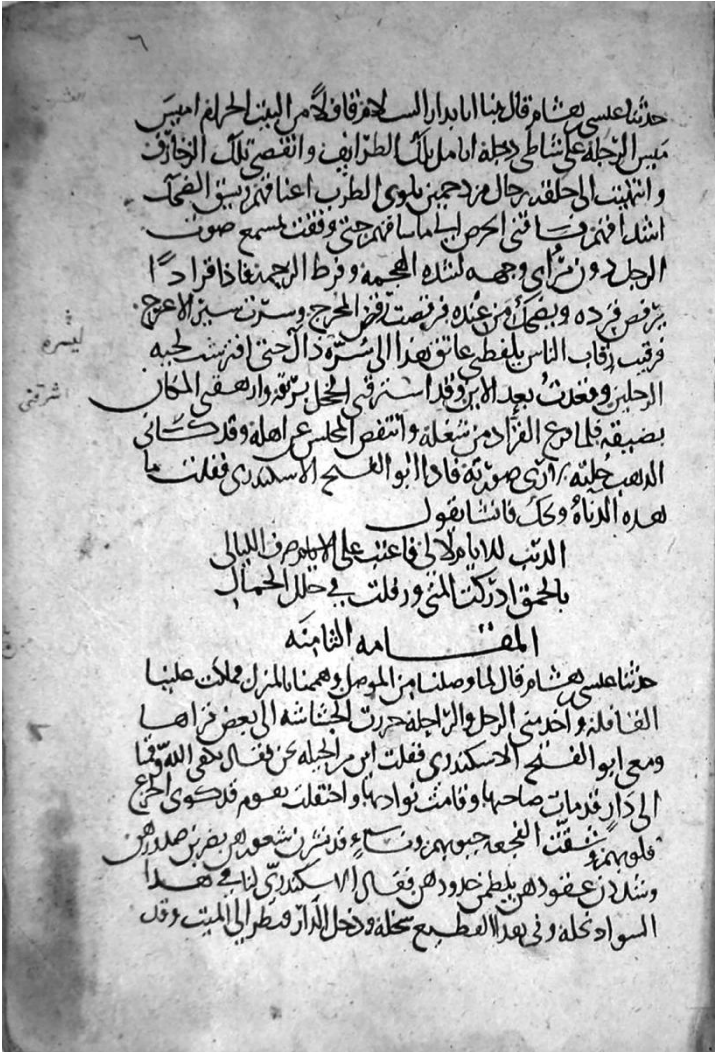 ٦
حدثنا عيسى بن هشام قال بينا انا بدار السلام قافلا من البيت الحرام اميس
ميس الرجلة على شاطى دجلة اتامل تلك الطرايف واتقصى تلك الزخارف
وانتهيت الى حلقة رجال مزدحمين يلوى الطرب اعناقهم ويشق الضحك
اشداقهم فساقنى الحرص الى ما ساقهم حتى وقفت بمسمع صوت
الرجل دون مرأى وجهه لشدة الهجمة وفرط الزحمة فاذا قراد
يرقص قرده ويضحك من عنده فرقصت رقص المحرج وسرت سير الاعرج
فوق رقاب الناس يلفظنى عاتق هذا الى سرة ذاك حتى افترشت لحية
ليسره
الرجلين وقعدت بعد الاين وقد اشرقنى الخجل بريقه وارهقنى المكان
اشرقنى
بضيقه فلما فرغ القراد من شغله وانتفض المجلس عن اهله وقد كسانى
الدهب حليته لارى صورته فاذا ابو الفتح الاسكندرى فقلت ما
هذه الدناة ويحك فانشا يقول
الذنب للايام لا لى فاعتب على الايام صرف الليالى
بالحمق ادركت المنى ورفلت فى حلل الجمال
المقامه الثامنه
حدثنا عيسى بن هشام قال لما وصلنا من الموصل وهممنا بالمنزل وملكت علينا
القافلة واخذ منى الرحل والراحلة جررت الحشاشه الى بعض قراها
ومعى ابو الفتح الاسكندرى فقلت اين من الحيله نحن فقال يكفى الله وقمنا
الى دار قد مات صاحبها وقامت نوادبها واحتفلت بقوم قد كوى الجزع
قلوبهم وشقت الفجعه جيوبهم ونساء قد نشرن شعورهن يضربن صدورهن
وشددن عقودهن يلطمن خدودهن فقال الاسكندرى لنا فى هذا
السواد نخله وفى هذا القطيع سخله ودخل الدار ونظر الى الميت وقد